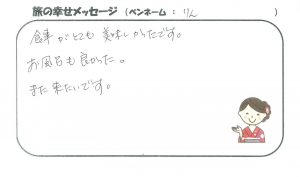 旅の幸せメッセージ （ペンネーム ： りん ）
食事がとても美味しかったです。
お風呂も良かった。
また来たいです。